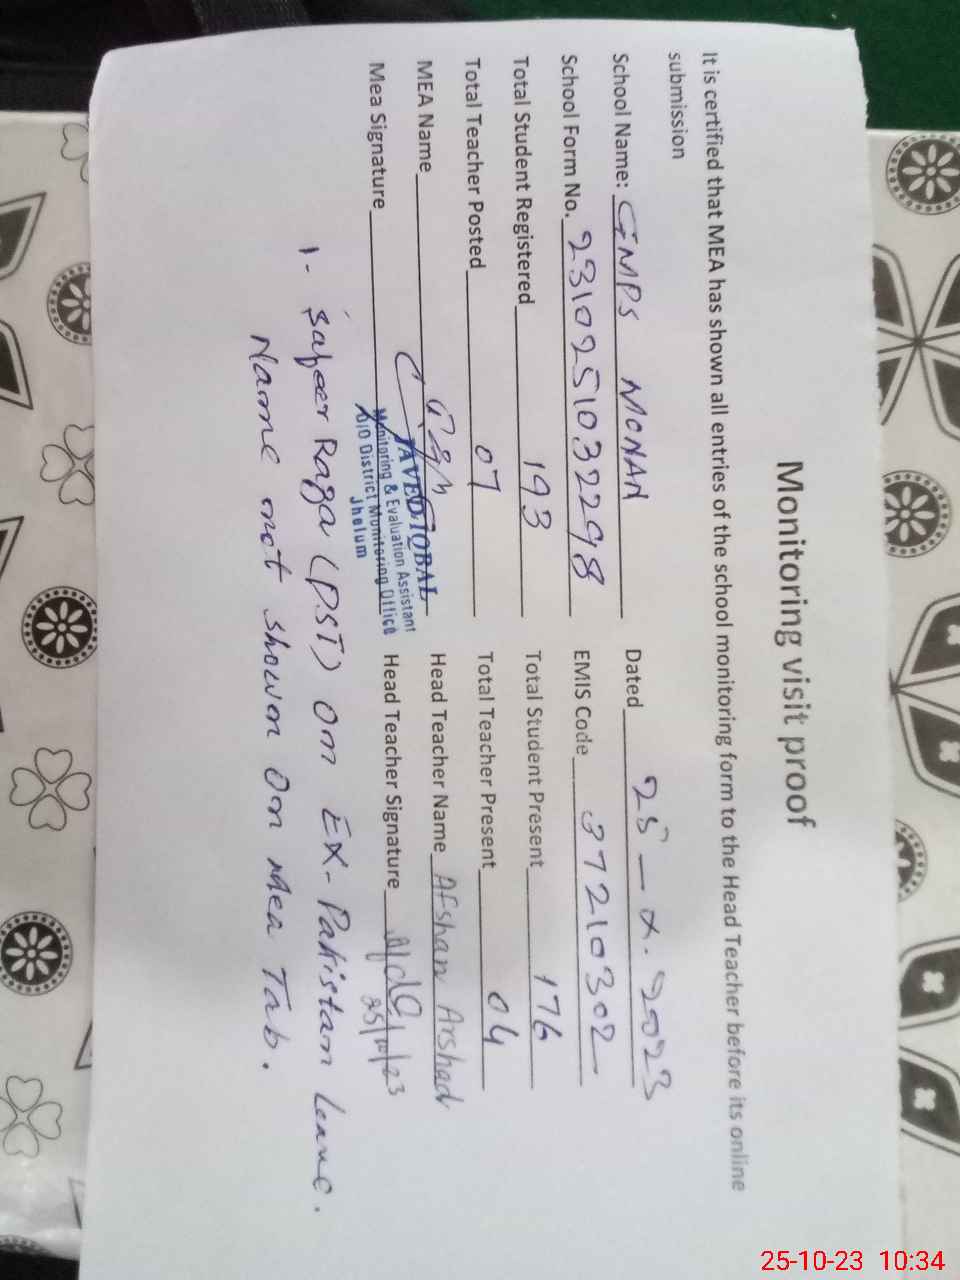 Monitoring visit proof
It is certified that MEA has shown all entries of the school monitoring form to the Head Teacher before its online
submission
School Name: GMPS MONAN Dated 25-X-2023
School Form No. 23102510322298 EMIS Code 37210302
Total Student Registered 193 Total Student Present 176
Total Teacher Posted 07 Total Teacher Present 04
MEA Name Head Teacher Name Afshan Arshad
Mea Signature Head Teacher Signature
25/10/23
JAVED IQBAL
Monitoring & Evaluation Assistant
O/O District Monitoring Office
Jhelum
1- Raza (PST) on Ex-Pakistan Leave.
Name not shown on Mea Tab.
25-10-23 10:34